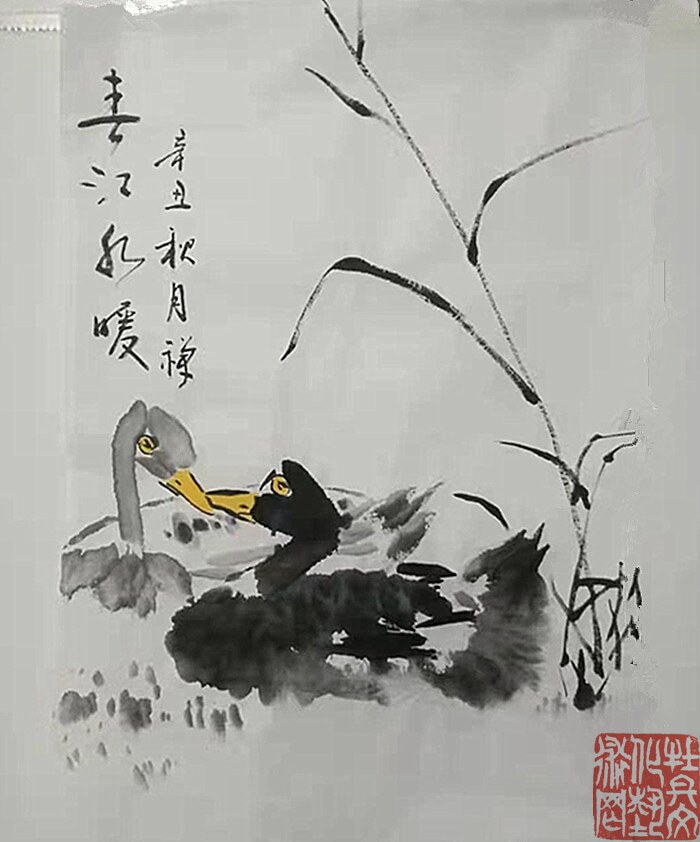 春江水暖
辛丑秋月禅